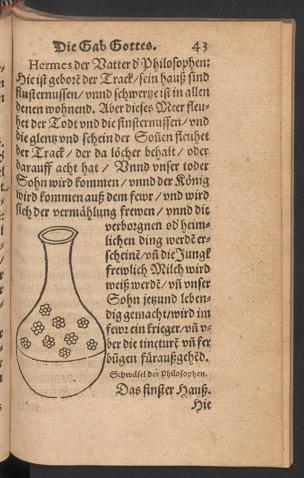 Die Gab Gottes. 43
Hermes der Vatter d̕ Philosophen:
Hie ist geborẽ der Track / sein hauß sind
finsternussen / vnnd schwertze ist in allen
denen wohnend. Aber dieses Meer fleu-
het der Todt vnd die finsternussen / vnd
die glentz vnd schein der Soñen fleuhet
der Track / der da löcher behalt / oder
darauff acht hat / Vnnd vnser todter
Sohn wird kommen / vnnd der König
wird kommen auß dem fewr / vnd wird
sich der vermählung frewen / vnnd die
verborgnen od̕ heim-
lichen ding werdẽ er-
scheinẽ / vñ die Jungk
frewlich Milch wird
weiß werdẽ / vñ vnser
Sohn jetzund leben-
dig gemacht / wird im
fewr ein krieger / vñ v-
ber die tincturẽ vñ fer
bũgen füraußgehẽd.
Schwäfel der Philosophen.
Das finster Hauß.
Hie